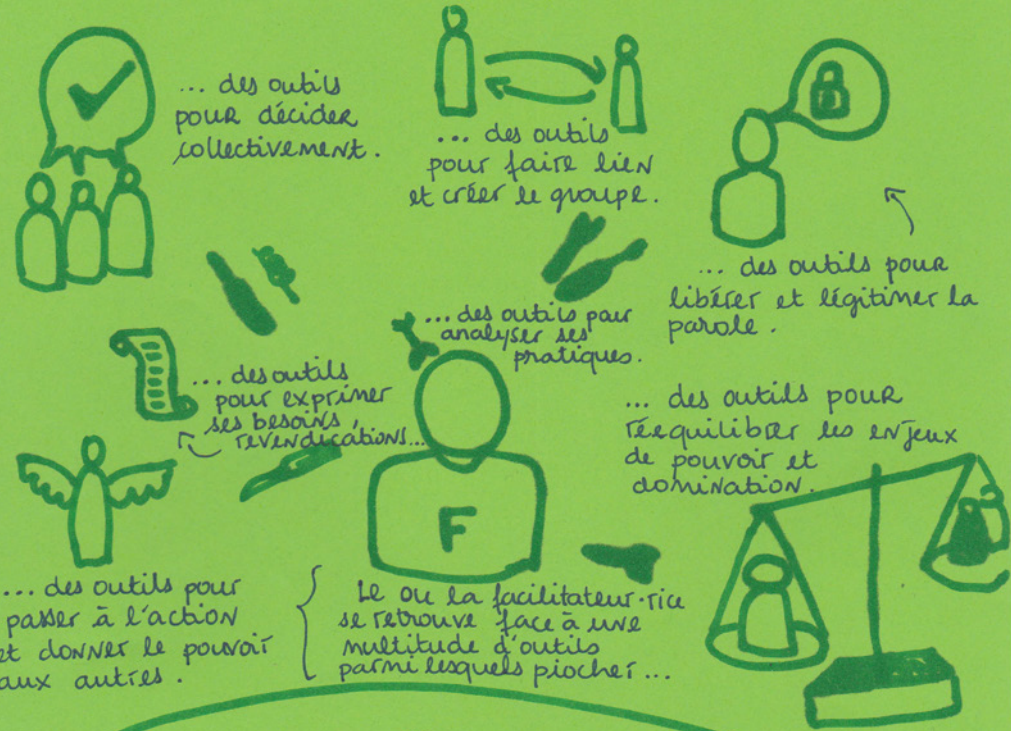 ... des outils
pour décider
collectivement.
... des outils
pour faire lien
et créer le groupe.
... des outils pour
libérer et légitimer la
parole.
... des outils pour
analyser ses
pratiques.
... des outils
pour exprimer
ses besoins,
revendications...
... des outils pour
réequilibrer les enjeux
de pouvoir et
domination.
F
... des outils pour
passer à l'action
et donner le pouvoir
aux autres.
Le ou la facilitateur·rice
se retrouve face à une
multitude d'outils
parmi lesquels piocher...